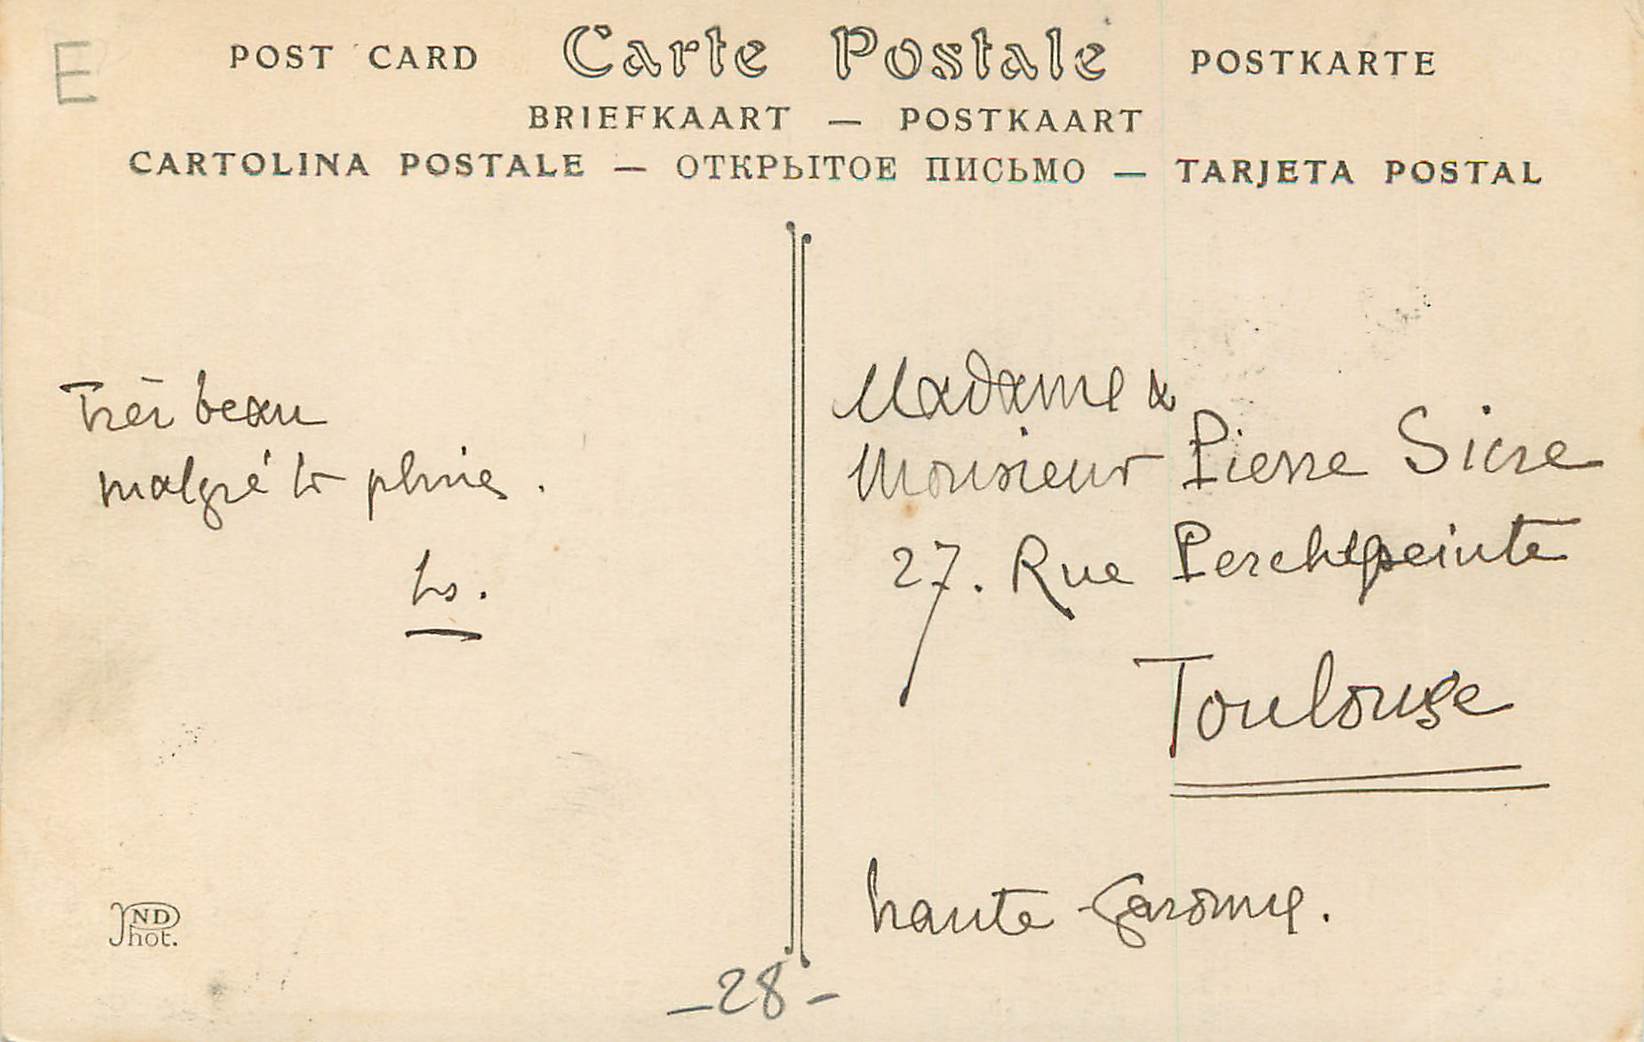 E
POST CARD Carte Postale POSTKARTE
BRIEFKAART — POSTKAART
CARTOLINA POSTALE — ОТКРЫТОЕ ПИСЬМО — TARJETA POSTAL
Très beau
malgré la pluie.
Madame &
Monsieur Pierre Sicre
27. Rue Perchepeinte
Toulouse
haute-Garonne.
ND
Phot.
-28-